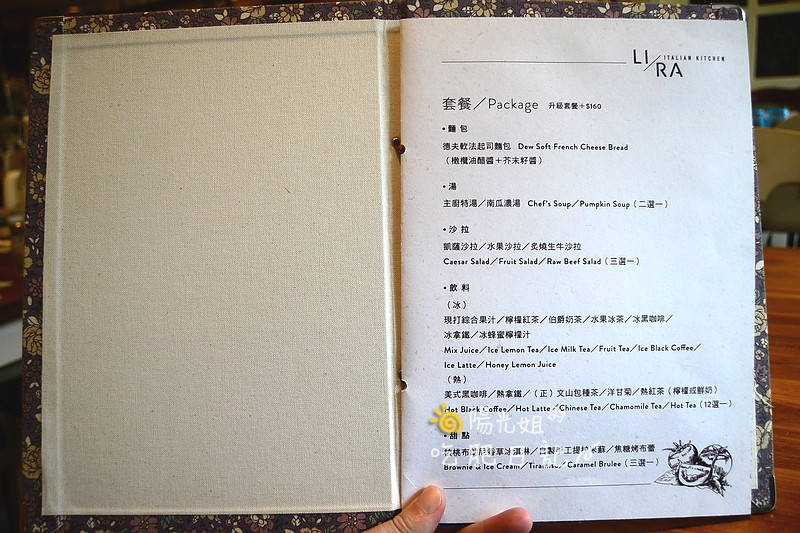 LI/RA ITALIAN KITCHEN
套餐／Package 升級套餐+$160
• 麵包
德夫軟法起司麵包 Dew Soft French Cheese Bread
（橄欖油醋醬＋芥末籽醬）
• 湯
主廚特湯／南瓜濃湯 Chef's Soup／Pumpkin Soup（二選一）
• 沙拉
凱薩沙拉／水果沙拉／炙燒生牛沙拉
Caesar Salad／Fruit Salad／Raw Beef Salad（三選一）
• 飲料
（冰）
現打綜合果汁／檸檬紅茶／伯爵奶茶／水果冰茶／冰黑咖啡／
冰拿鐵／冰蜂蜜檸檬汁
Mix Juice／Ice Lemon Tea／Ice Milk Tea／Fruit Tea／Ice Black Coffee／
Ice Latte／Honey Lemon Juice
（熱）
美式黑咖啡／熱拿鐵／（正）文山包種茶／洋甘菊／熱紅茶（檸檬或鮮奶）
Hot Black Coffee／Hot Latte／Chinese Tea／Chamomile Tea／Hot Tea（12選一）
• 甜點
核桃布朗尼香草冰淇淋／自製手工提拉米蘇／焦糖烤布蕾
Brownie & Ice Cream／Tiramisu／Caramel Brulee（三選一）
陽光姐的
吃肥日記